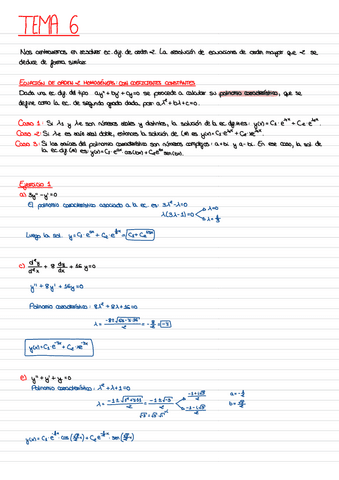 TEMA 6
Nos centraremos en resolver ec. dif. de orden-2. La resolución de ecuaciones de orden mayor que -2 se
deduce de forma similar.
ECUACIÓN DE ORDEN-2 HOMOGÉNEAS CON COEFICIENTES CONSTANTES
Dada una ec. dif. del tipo ay''+by'+cy=0 se procede a calcular su polinomio característico, que se
define como la ec. de segundo grado dada, por aλ²+bλ+c=0.
Caso 1: Si λ₁ y λ₂ son números reales y distintos, la solución de la ec. dif es: y(x)=C₁·e^λ₁x + C₂·e^λ₂x.
Caso -2: Si λ es raíz real doble, entonces la solución de (*) es y(x)=C₁·e^λx + C₂·xe^λx.
Caso 3: Si las raíces del polinomio característico son números complejos: a+bi y a-bi. En ese caso, la sol. de
la ec. dif (*) es: y(x)=C₁·e^ax cos(bx)+C₂e^ax sen(bx).
Ejercicio 1
a) 3y''-y'=0
El polinomio característico asociado a la ec. es: 3λ²-λ=0
λ(3λ-1)=0
λ=0
λ=1/3
Luego la sol. y=C₁·e^0x+C₂·e^1/3x=C₁+C₂e^1/3x
c) d²y/d²x + 8 dy/dx + 16y=0
y''+8y'+16y=0
Polinomio característico: λ²+8λ+16=0
y(x)=C₁·e^
e) y''+y'+y=0
Polinomio característico: λ²+λ+1=0
a=-1/2